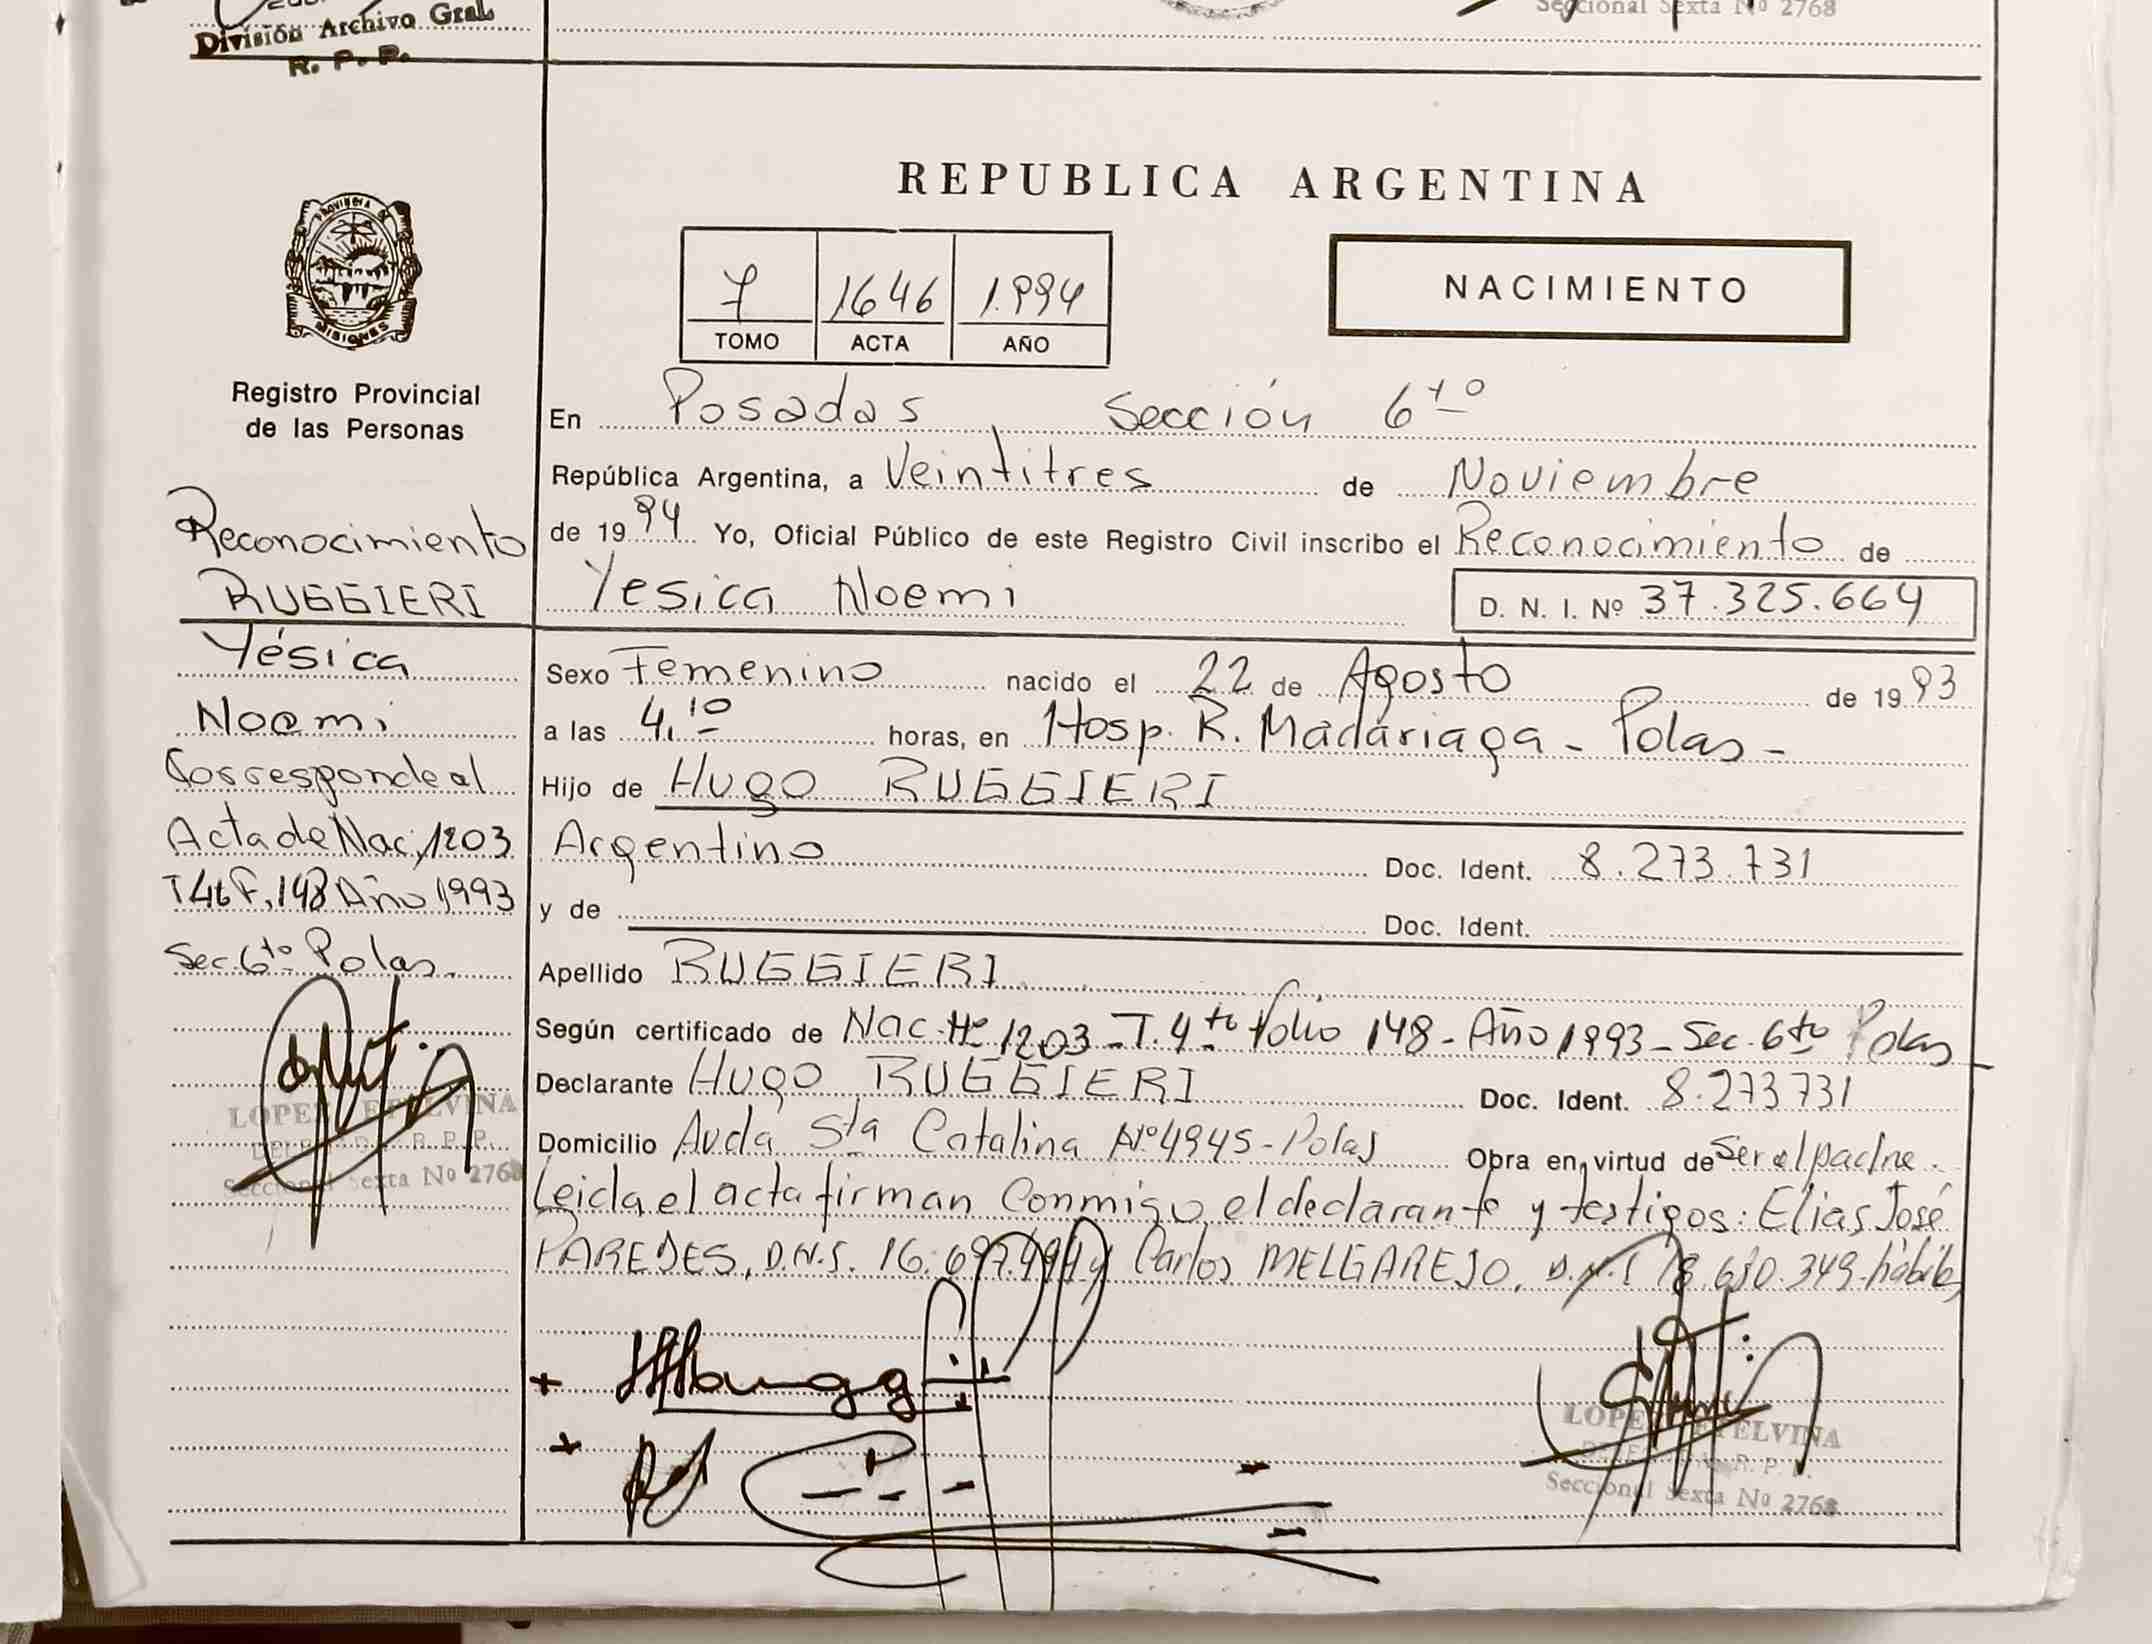 División Archivo Gral.
R. P. P.
Seccional Sexta Nº 2768
REPUBLICA ARGENTINA
PROVINCIA DE
MISIONES
7 1646 1.994
TOMO ACTA AÑO
NACIMIENTO
Registro Provincial
de las Personas
En Posadas Sección 6to
República Argentina, a Veintitres de Noviembre
de 1994 Yo, Oficial Público de este Registro Civil inscribo el Reconocimiento de
Yesica Noemi D. N. I. Nº 37.325.664
Sexo Femenino nacido el 22 de Agosto de 1993
a las 4.10 horas, en Hosp. R. Madariaga - Pdas -
Hijo de Hugo RUGGIERI
Argentino Doc. Ident. 8.273.731
y de Doc. Ident.
Apellido RUGGIERI
Según certificado de Nac. Nº 1203 - T. 4to folio 148 - Año 1993 - Sec. 6to Pdas
Declarante Hugo RUGGIERI Doc. Ident. 8.273731
Domicilio Avda Sta Catalina Nº 4945 - Pdas Obra en virtud de Ser el padre.
Leida el acta firman Conmigo, el declarante y testigos: Elias José
PAREDES, D.N.I. 16. y Carlos MELGAREJO, D.N.I 349 hábiles
Reconocimiento
RUGGIERI
Yésica
Noemi
Corresponde al
Acta de Nac. 1203
T 4to F. 148 Año 1993
Sec. 6to Pdas.
LOPEZ ETELVINA
R. P. P.
Seccional Sexta Nº 2768
LOPEZ ETELVINA
R. P. P.
Seccional Sexta Nº 2768